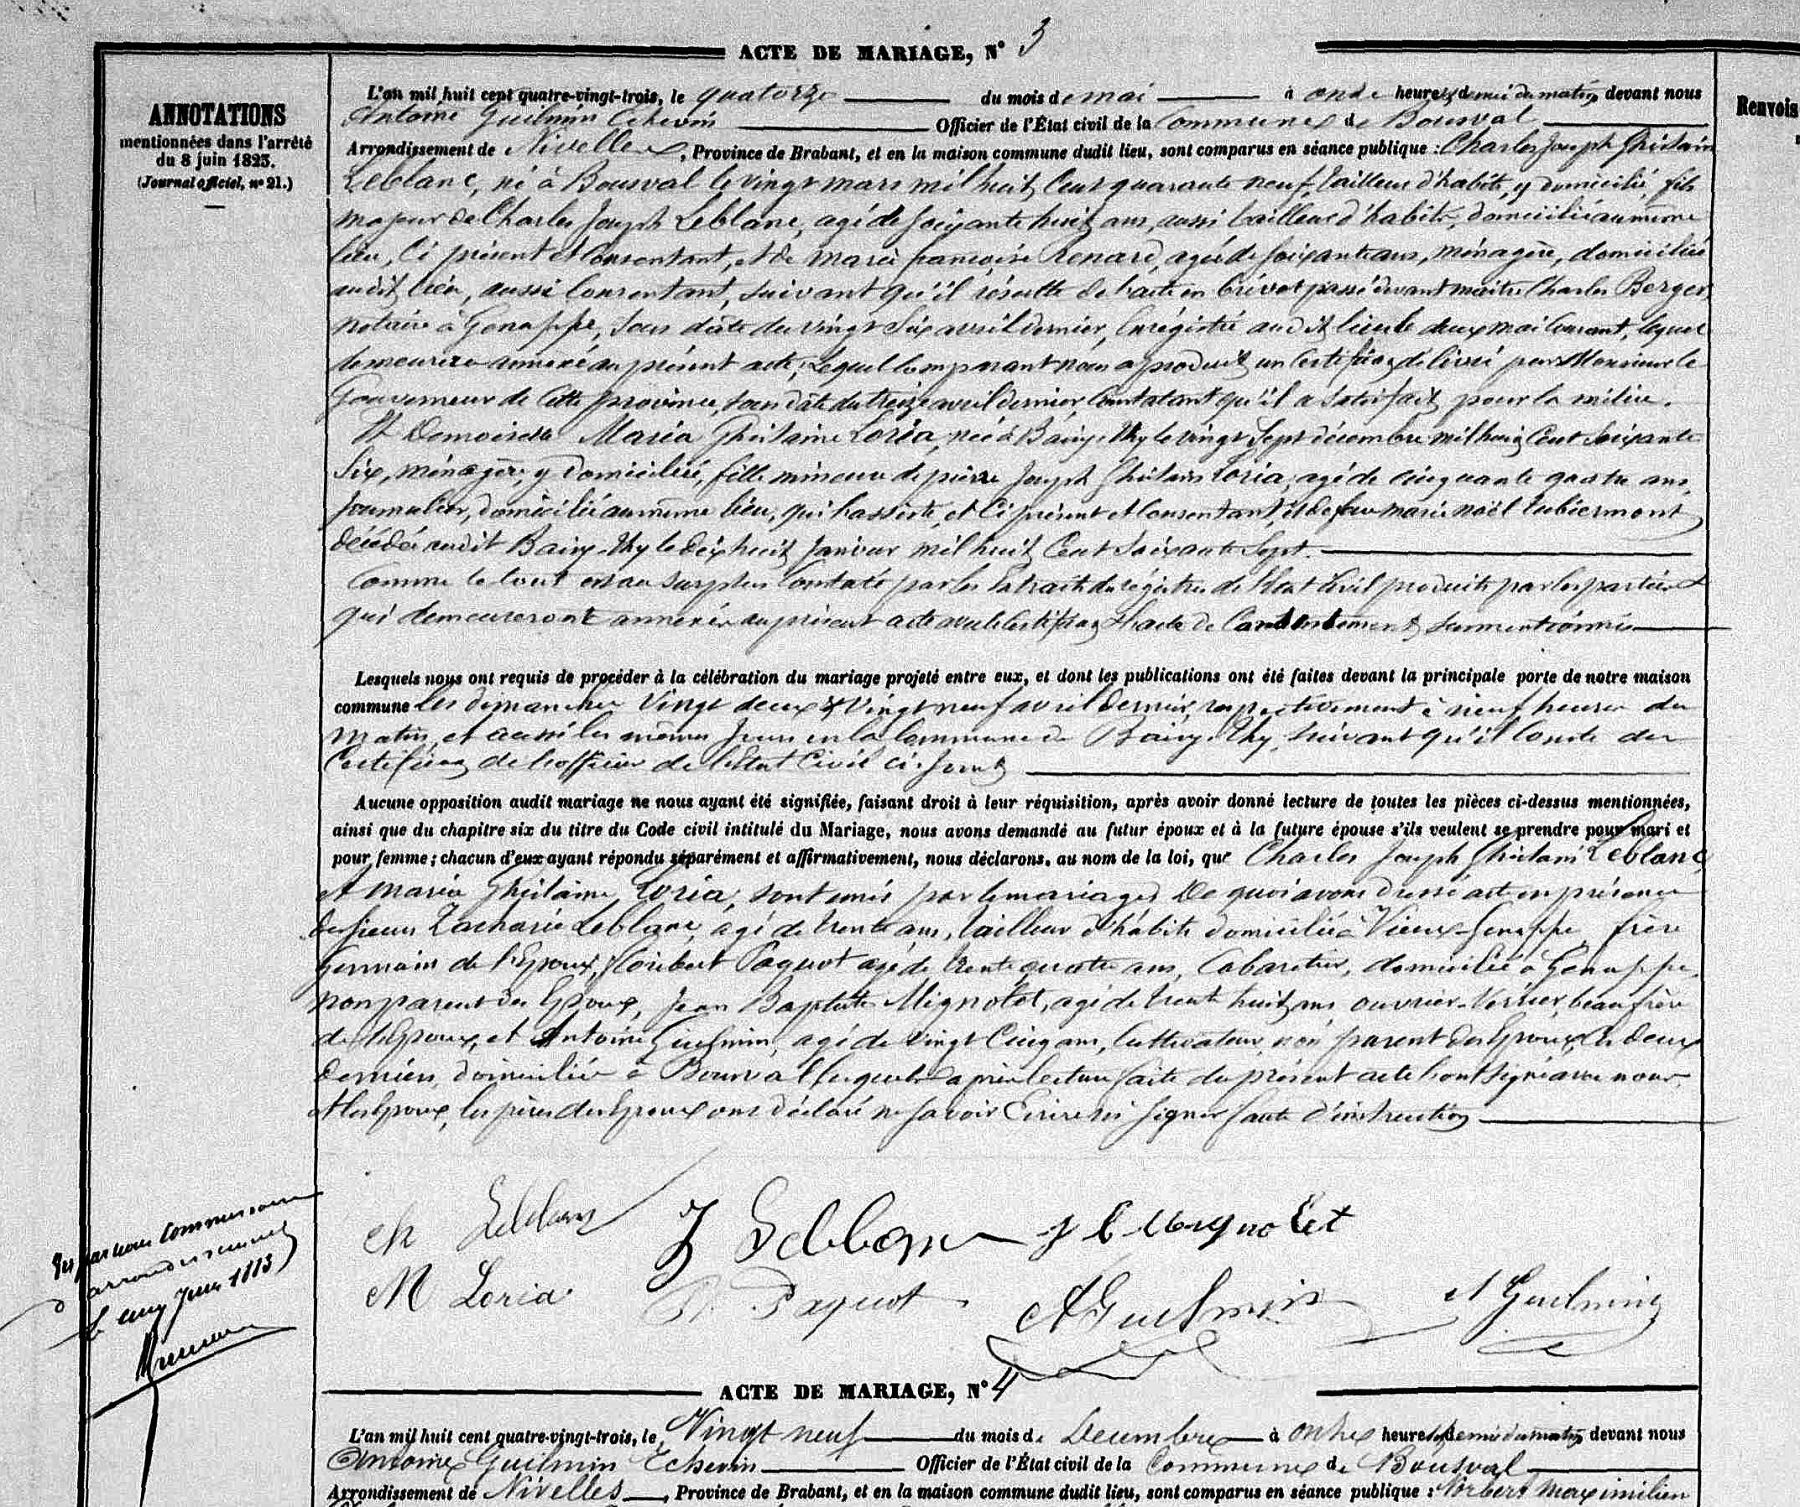 ACTE DE MARIAGE, N° 3
ANNOTATIONS
mentionnées dans l'arrêté
du 8 juin 1823.
(Journal officiel, n° 21.)
Renvois
L'an mil huit cent quatre-vingt-trois, le quatorze du mois de mai à onze heures & demie du matin devant nous
Antoine Guilmin Echevin Officier de l'État civil de la Commune de Bousval
Arrondissement de Nivelles, Province de Brabant, et en la maison commune dudit lieu, sont comparus en séance publique : Charles Joseph Ghislain
Leblanc, né à Bousval le vingt mars mil huit cent quarante neuf, tailleur d'habits, y domicilié, fils
majeur de Charles Joseph Leblanc, agé de soixante huit ans, aussi tailleur d'habits, domicilié au même
lieu, ci présent et consentant, et de Marie françoise Renard, agée de soixante ans, ménagère, domiciliée
audit lieu, aussi consentant, suivant qu'il résulte de l'acte en brévet passé devant maitre Charles Berger,
notaire à Genappe, sous date du vingt six avril dernier, enrégistré audit lieu le deux mai courant, lequel
demeurera annexé au présent acte; Lequel comparant nous a produit un certificat délivré par Monsieur le
Gouverneur de cette province, sous date du treize avril dernier, constatant qu'il a satisfait pour la milice.
Et Demoiselle Maria Ghilaine Loria, née à Baisy-Thy le vingt sept décembre mil huit cent soixante
six, ménagère, y domiciliée, fille mineure de pierre Joseph Ghislain Loria, agé de cinquante quatre ans,
journalier, domicilié au même lieu, qui l'assiste, et ci présent et consentant, et de feue marie noël Lubiermont
décédée audit Baisy-Thy le dix huit janvier mil huit cent soixante sept.
Comme le tout est au surplus constaté par les Extraits des régistres de l'Etat Civil produits par les parties &
qui demeureront annexés au présent acte avec le certificat & l'acte de consentement susmentionnés
Lesquels nous ont requis de procéder à la célébration du mariage projeté entre eux, et dont les publications ont été faites devant la principale porte de notre maison
commune les dimanches vingt deux & vingt neuf avril dernier, respectivement à neuf heures du
matin, et aussi les mêmes jours en la commune de Baisy-Thy, suivant qu'il conste du
certificat de l'officier de l'Etat Civil ci-joint
Aucune opposition audit mariage ne nous ayant été signifiée, faisant droit à leur réquisition, après avoir donné lecture de toutes les pièces ci-dessus mentionnées,
ainsi que du chapitre six du titre du Code civil intitulé du Mariage, nous avons demandé au futur époux et à la future épouse s'ils veulent se prendre pour mari et
pour femme ; chacun d'eux ayant répondu séparément et affirmativement, nous déclarons, au nom de la loi, que Charles Joseph Ghislain Leblanc
et Maria Ghilaine Loria, sont unis par le mariage. De quoi avons dressé acte en présence
de sieurs Zacharie Leblanc, agé de trente ans, tailleur d'habits domicilié à Vieux-Genappe, frère
germain de l'Epoux, Norbert Paquot agé de trente quatre ans, Cabaretier, domicilié à Genappe,
non parent des Epoux, Jean Baptiste Mignolet, agé de trente huit ans, ouvrier-verrier, beau frère
de l'Epoux, et Antoine Guilmin, agé de vingt cinq ans, cultivateur, non parent des Epoux, les deux
derniers domiciliés à Bousval lesquels après lecture faite du présent acte l'ont signé avec nous,
et les Epoux, les pères des Epoux ont déclaré ne savoir Ecrire ni signer faute d'instruction
Ch Leblanc Z Leblanc J B Mignolet
M Loria N. Paquot A Guilmin A Guilmin
Vu par nous Commissaire
d'arrondissement
le cinq Juin 1883
ACTE DE MARIAGE, N° 4
L'an mil huit cent quatre-vingt-trois, le Vingt neuf du mois de Décembre à onze heures & demie du matin devant nous
Antoine Guilmin Echevin Officier de l'État civil de la Commune de Bousval
Arrondissement de Nivelles, Province de Brabant, et en la maison commune dudit lieu, sont comparus en séance publique : Norbert Maximilien